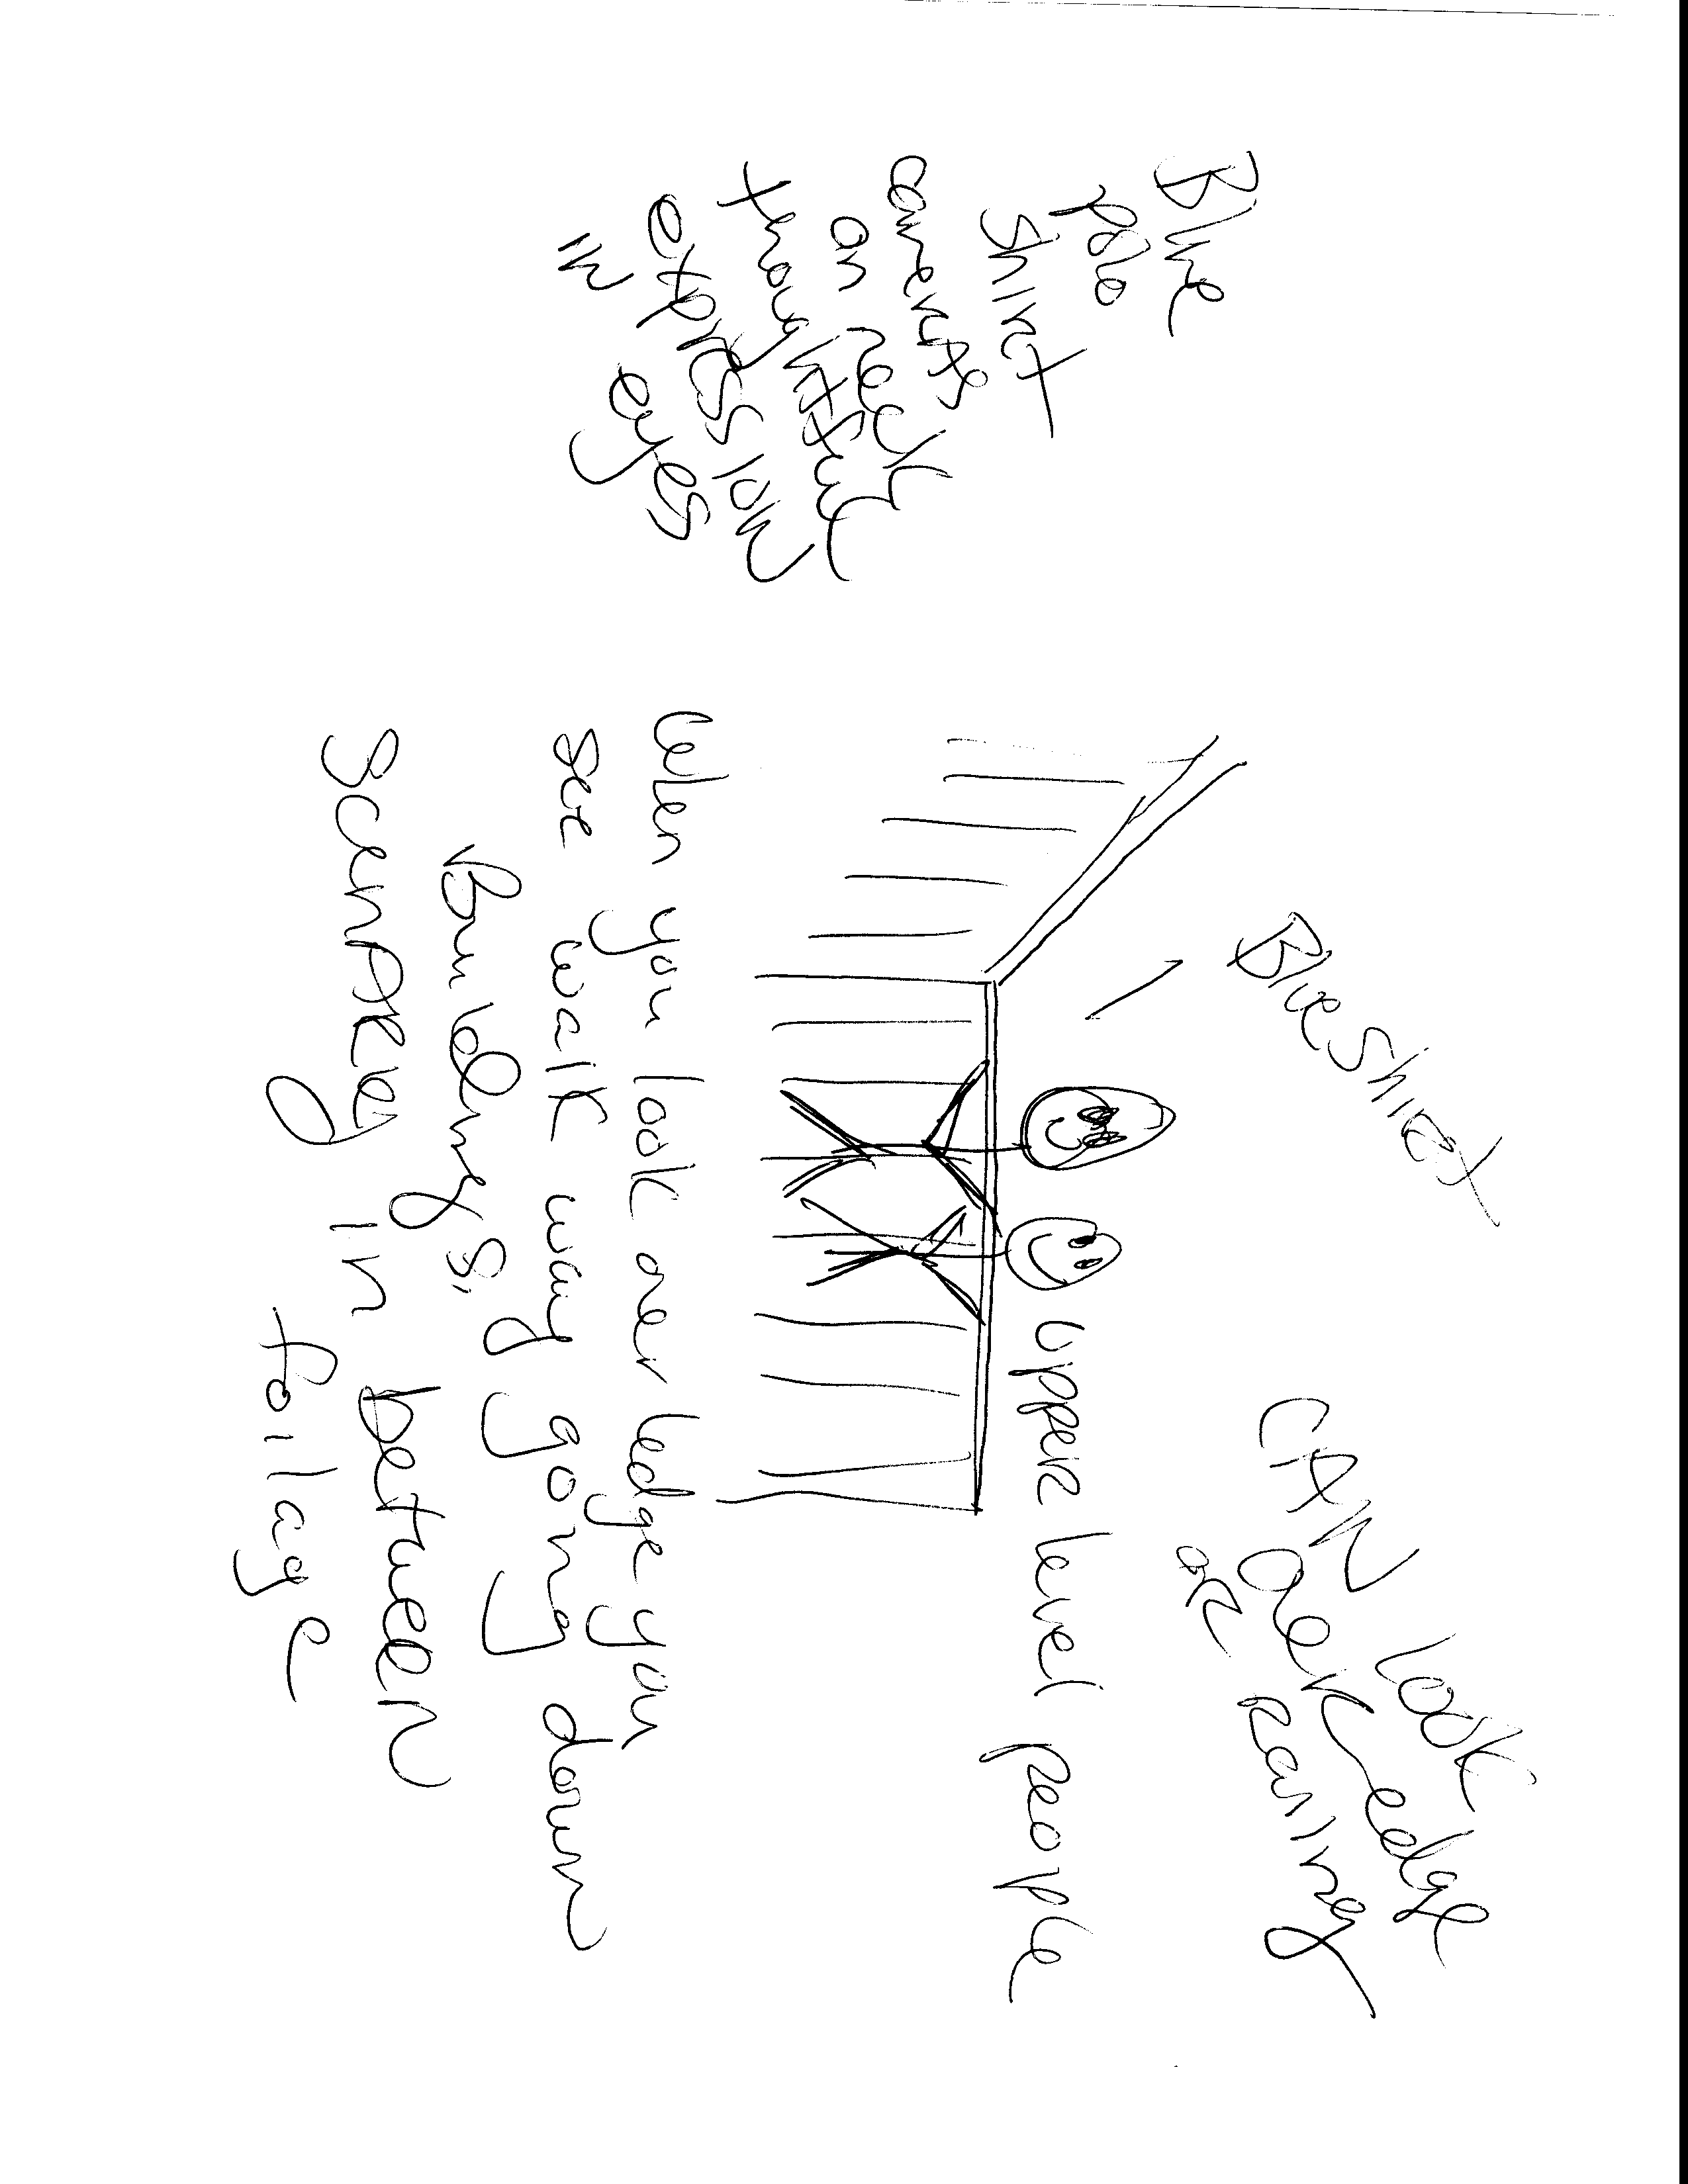 Blue
polo
shirt
camera
on neck
thoughtful
expression
in eyes
Blue Shirt
CAN look
Over edge
OR Railing
Upper level people
When you look over ledge you
see walk way going down
Buildings,
Scenery in between
foilage